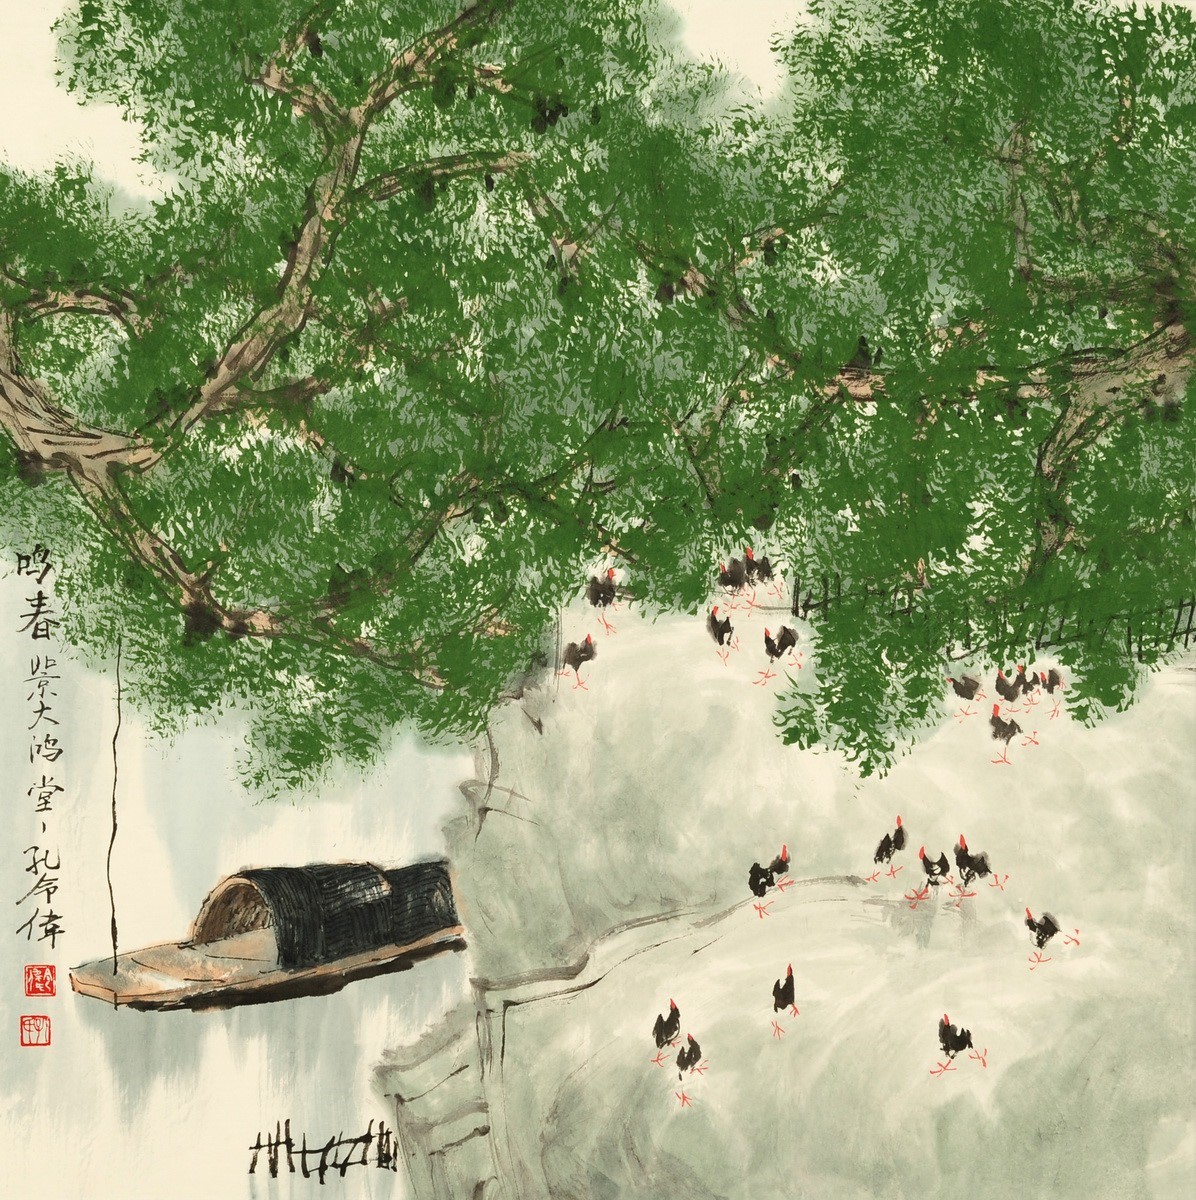 鸣春 紫大鸿堂、孔令偉